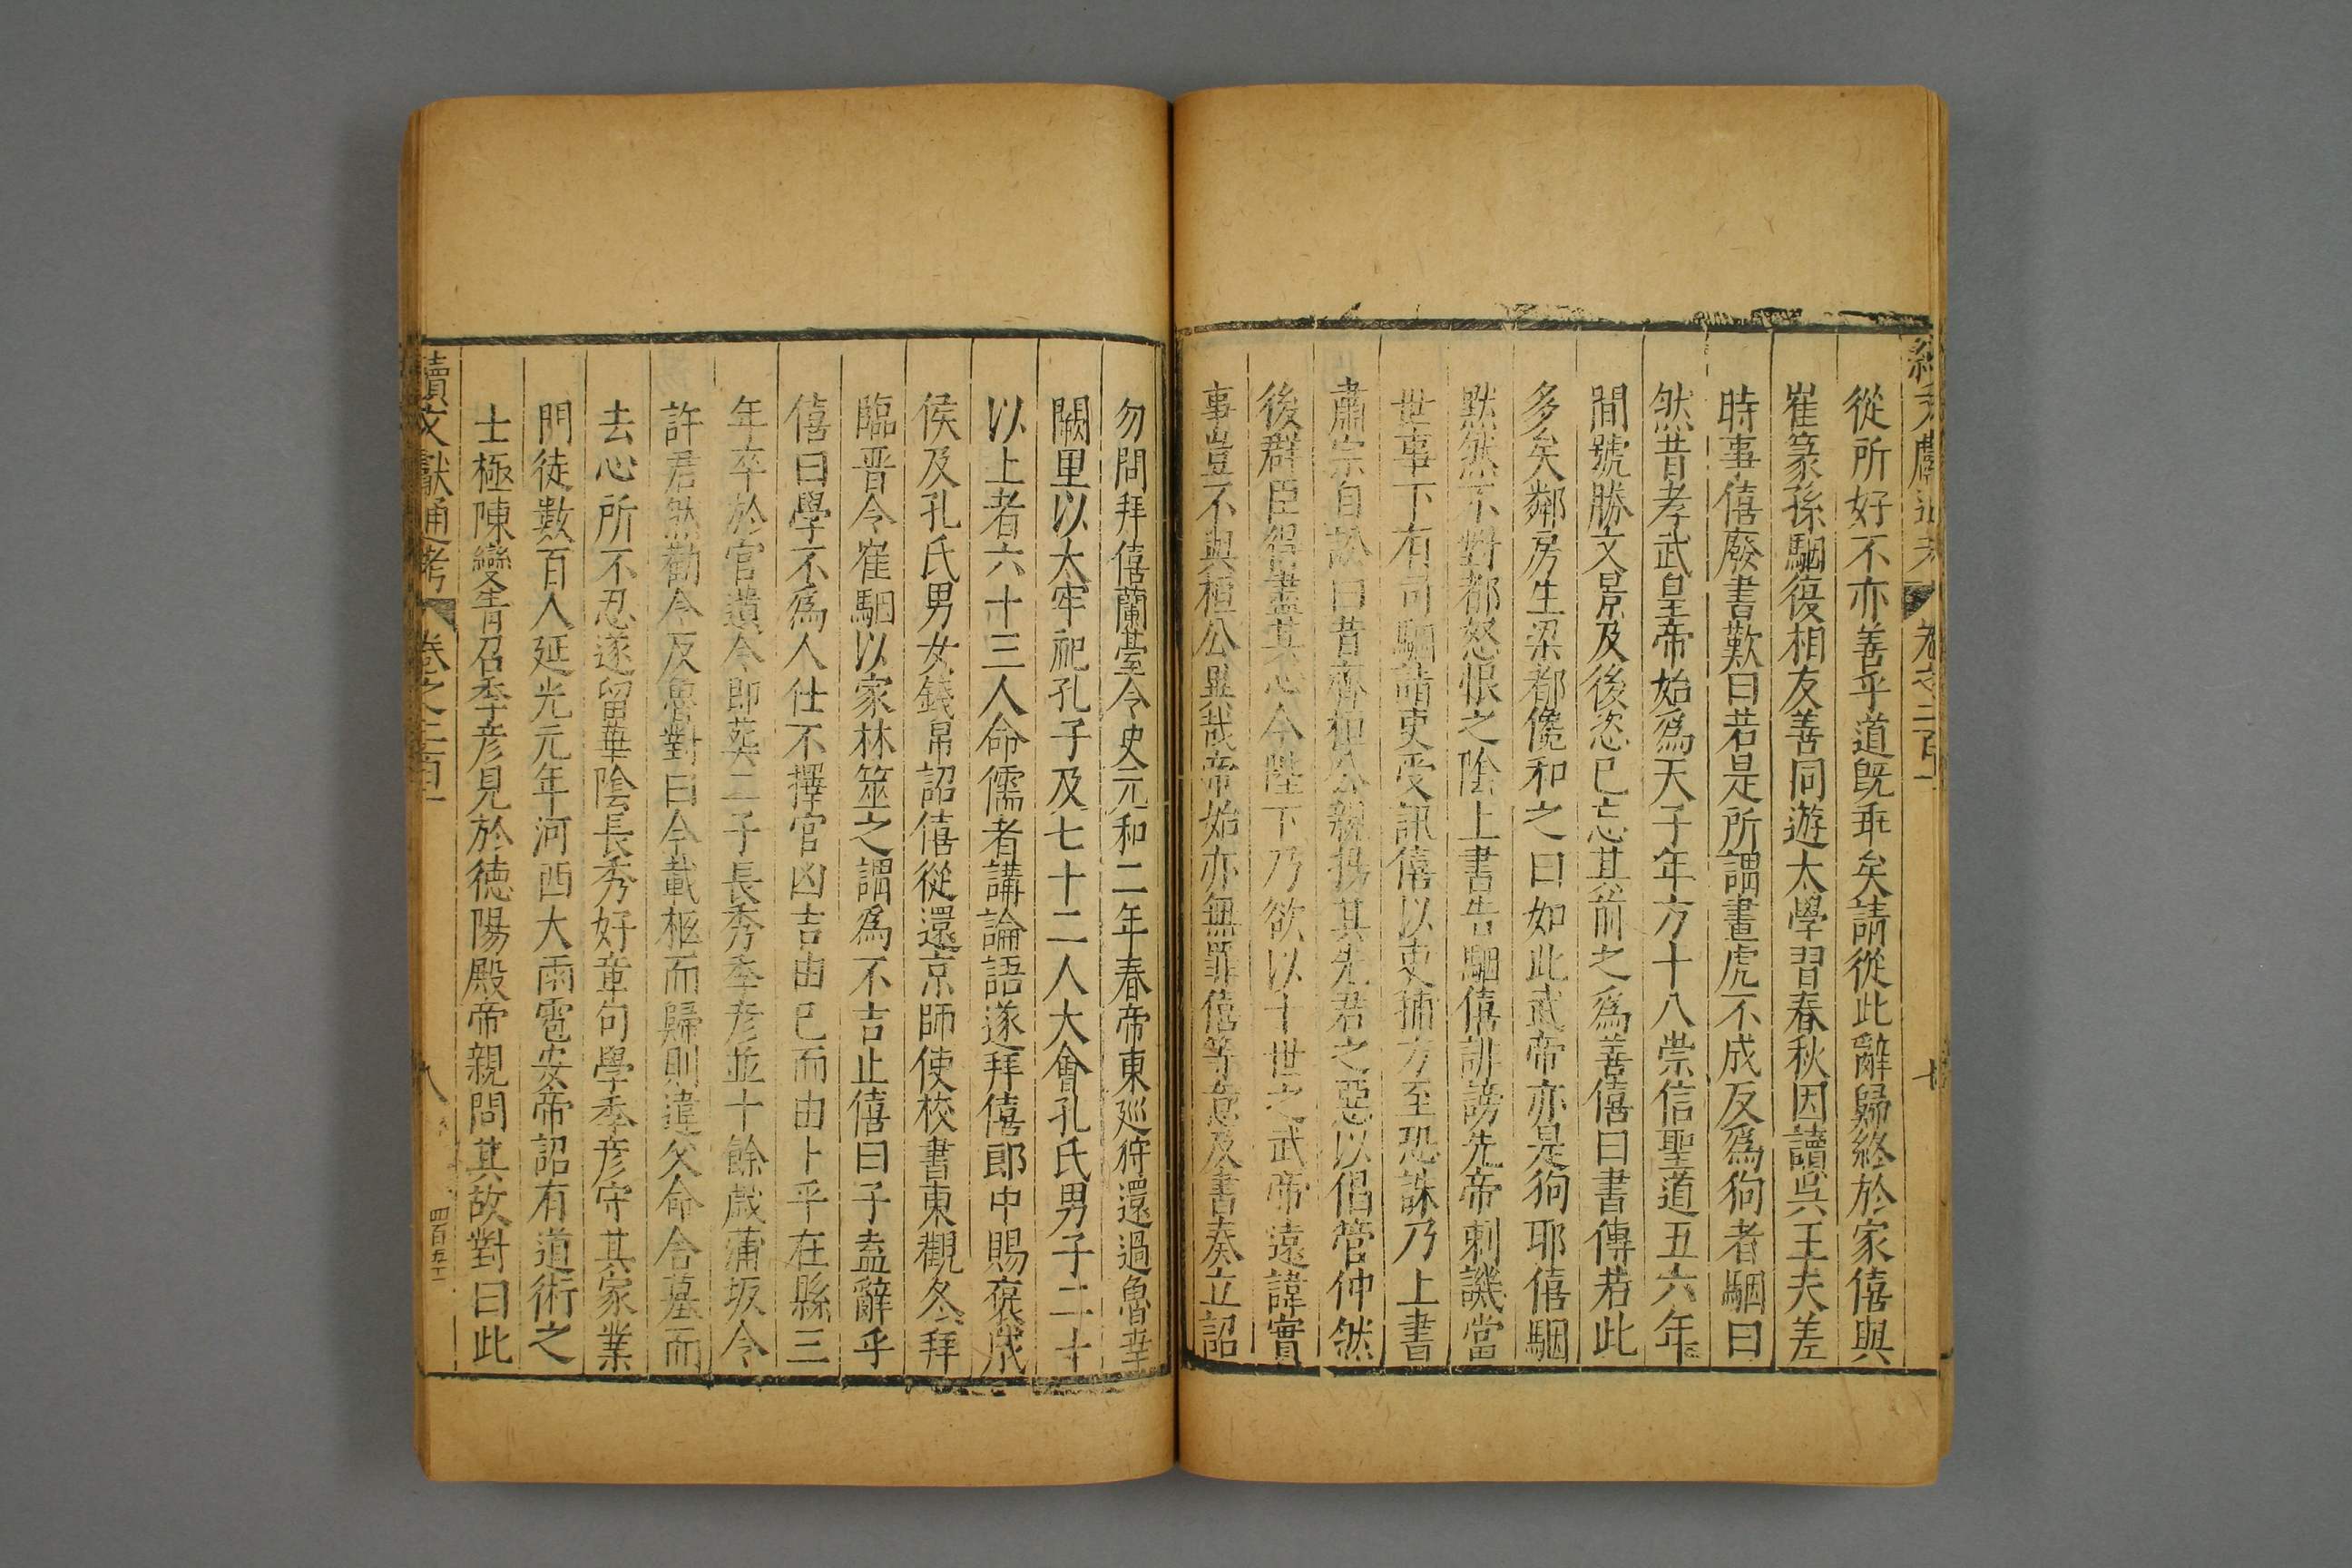 從所好不亦善乎道既乖矣請從此辭歸終於家僖與
崔篆孫駰復相友善同遊太學習春秋因讀吳王夫差
時事僖廢書歎曰若是所謂畫虎不成反爲狗者駰曰
然昔孝武皇帝始爲天子年方十八崇信聖道五六年
間號勝文景及後恣已忘其前之爲善僖曰書傳若此
多矣鄰房生梁都儳和之曰如此武帝亦是狗耶僖駰
默然不對都怒恨之陰上書告駰僖誹謗先帝刺譏當
世事下有司駰詣吏受訊僖以吏捕方至恐誅乃上書
肅宗自訟曰昔齊桓公親揚其先君之惡以倡管仲然
後群臣得盡其心今陛下乃欲以十世之武帝遠諱實
事豈不與桓公異哉帝始亦無罪僖等意及書奏立詔
勿問拜僖蘭臺令史元和二年春帝東廵狩還過魯幸
闕里以太牢祀孔子及七十二人大會孔氏男子二十
以上者六十三人命儒者講論語遂拜僖郎中賜褒成
侯及孔氏男女錢帛詔僖從還京師使校書東觀冬拜
臨晋令崔駰以家林筮之謂爲不吉止僖曰子盍辭乎
僖曰學不爲人仕不擇官凶吉由已而由卜乎在縣三
年卒於官遺令即葬二子長秀季彦並十餘歲蒲坂令
許君然勸令反魯對曰今載柩而歸則違父命舍墓而
去心所不忍遂留華陰長秀好章句學季彦守其家業
門徒數百人延光元年河西大雨雹安帝詔有道術之
士極陳變眚召季彦見於德陽殿帝親問其故對曰此
續文獻通考 卷之二百一 八 四百五十